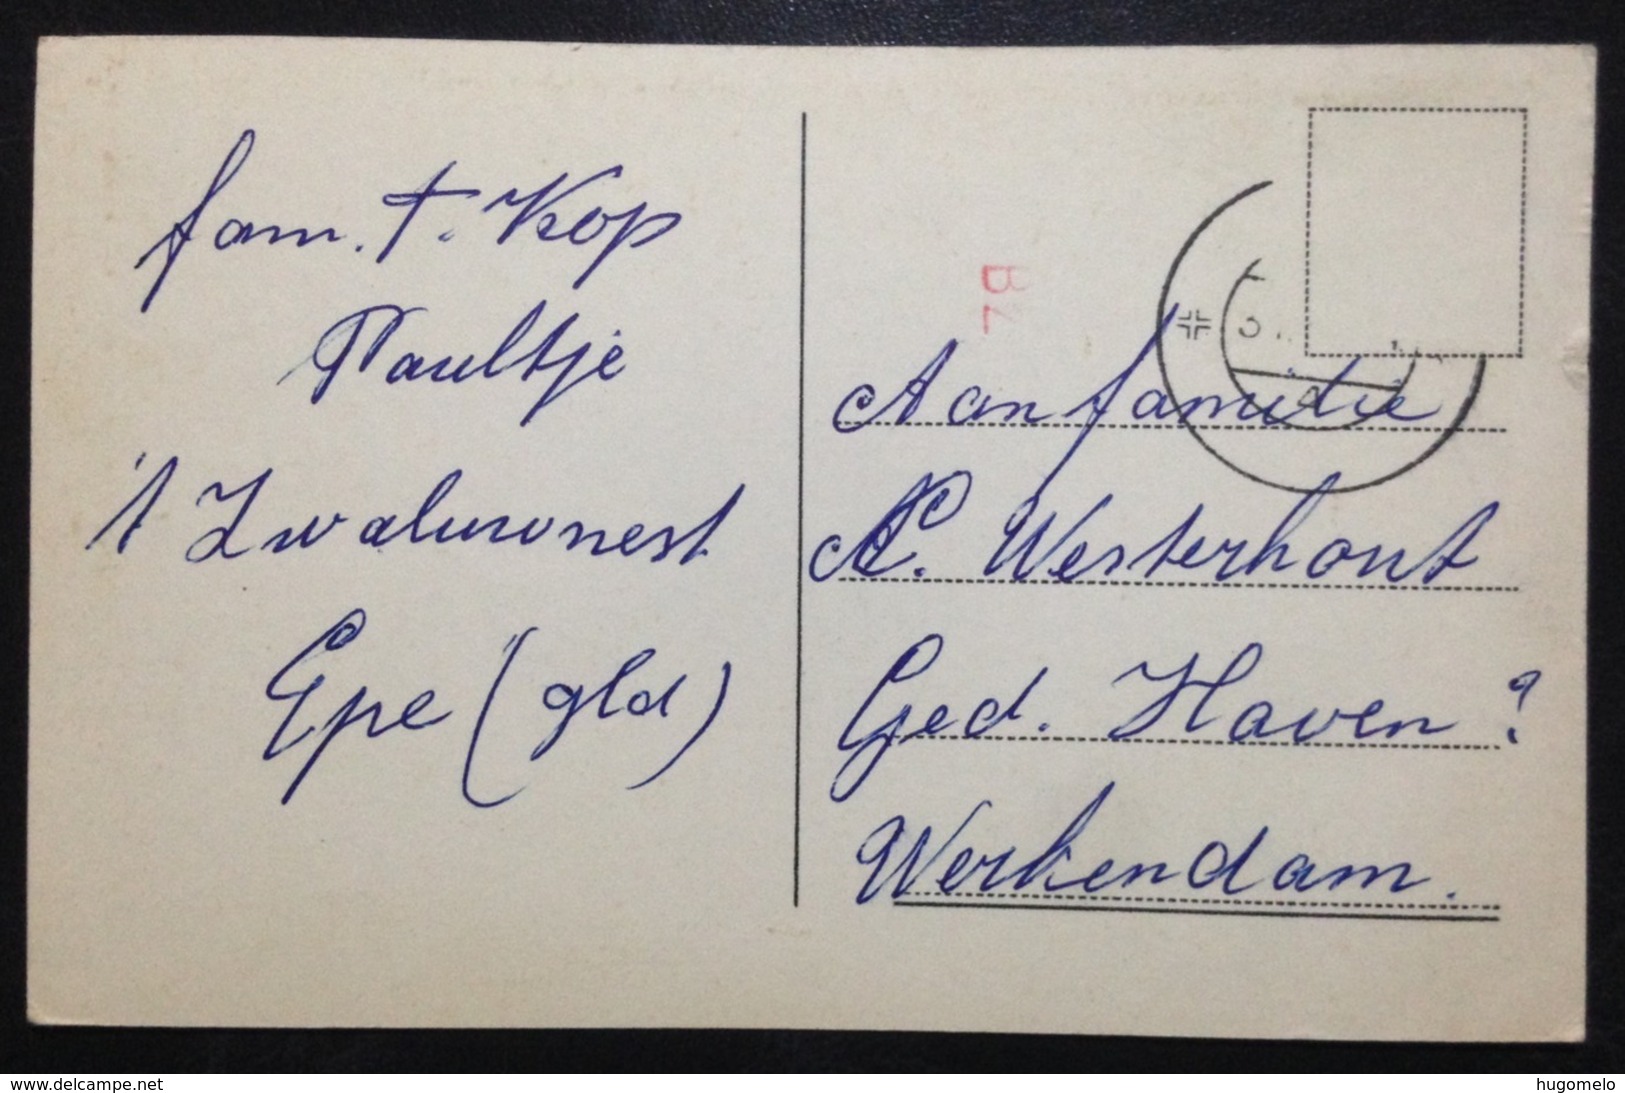 fam. T. Kop
Paultje
't Zwaluwnest
Epe (gld)
BZ
Aan familie
N. Westerhout
Ged. Haven ?
Werkendam.
www.delcampe.net
hugomelo